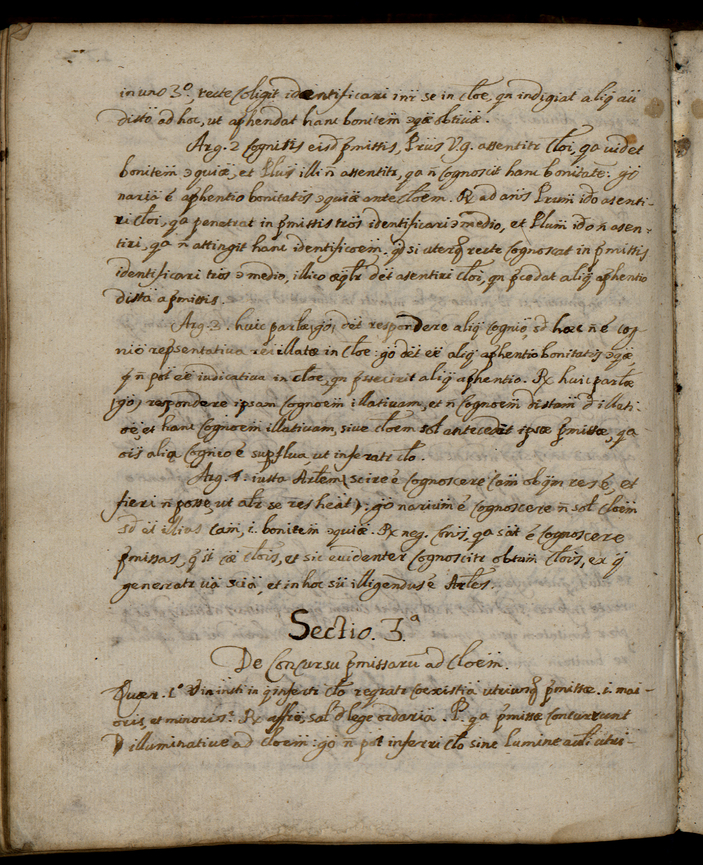 in uno 3º, recte coligit identificari inr se in cloe, qn indigiat aliq alï
distä ad hoc, ut aphendat hanc bonitem ɔqæ obtivæ.
Arg. 2 cognitis eisd pmissis, Prius V.g. assentitr cloi, qa videt
bonitem ɔquiæ, et Plus illi ñ assentitr, qa ñ cognoscit hanc bonitatē: go
naria ē aphentio bonitatis ɔquiæ ante cloem. Rx ad anis Prum ido asenti-
ri cloi, qa penetrat in pmissis tros identificari ɔ medio, et Plum ido ñ asen-
tiri, qa ñ attingit hanc identificoem. qd si uterq recte cognoscat in pmissis
identificari tros ɔ medio, illico æqlr det asentiri cloi, qn pcedat aliq aphentio
distä a pmissis.
Arg. 3. huic parlæ, go, det respondere aliq cognio, sd hæc ñ ē cog-
nio repsentativa rei illatæ in cloe: go det eē aliq aphentio bonitatis ɔqæ,
q ñ pot eē iudicativa in cloe, qn psseririt aliq aphentio. Rx huic parlæ
(go) respondere ipsam cognoem illativam, et ñ cognoem distam d illati-
oē, et hanc cognoem illativam, sive cloem sol antecedit ipsæ pmissæ, qa
ois alia cognio ē supflua ut inferatr clo.
Arg. 4. iuxta Arlem (scire ē cognoscere cam ob qm res ē, et
fieri ñ posse ut alr se res heat): go narium ē cognoscere ñ sol cloem
sd et illius cam, i. bonitem ɔquiæ. Rx neg. conis, qa sat ē cognoscere
pmissas, q st cæ clois, et sic evidenter cognoscitr obtum clois, ex q
generatr va scia, et in hoc su illigendus ē Arles.
Sectio. 3.ª
De Concursu pmissarū ad cloem.
Quær. 1º in insti in q infertr clo reqratr coexistia utriusq pmissæ. i. mai-
oris, et minoris? Rx affre, sal d lege ordaria. P. qa pmissæ concurrunt
illuminative ad cloem: go ñ pot inferri clo sine lumine acli utri-